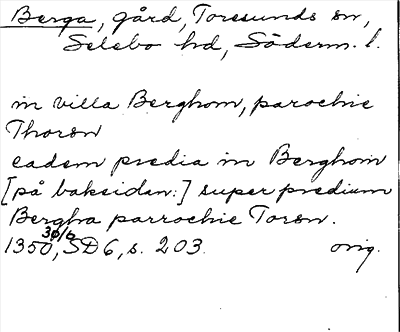 Berga, gård, Toresunds sn,
Selebo hd, Söderm. l.
in villa Berghom, parochie
Thorsn
eadem predia in Berghom
[på baksidan:] super predium
Bergha parrochie Torsn.
1350 30/6, SD 6, s. 203. orig.